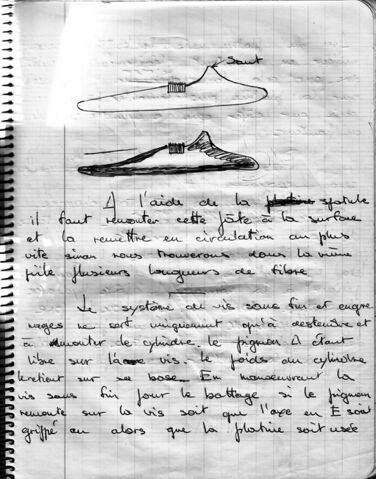 Saut
A l'aide de la platine spatule
il faut remonter cette pâte à la surface
et la remettre en circulation au plus
vite sinon nous trouverons dans la même
pile plusieurs longueurs de fibre
Le système de vis sans fin et engre
nages ne sert uniquement qu'à descendre et
à remonter le cylindre. le pignon A étant
libre sur la vis. le poids du cylindre
le retient sur sa base. En manoeuvrant la
vis sans fin pour le battage si le pignon
remonte sur la vis soit que l'axe en E soit
grippé ou alors que la platine soit usée